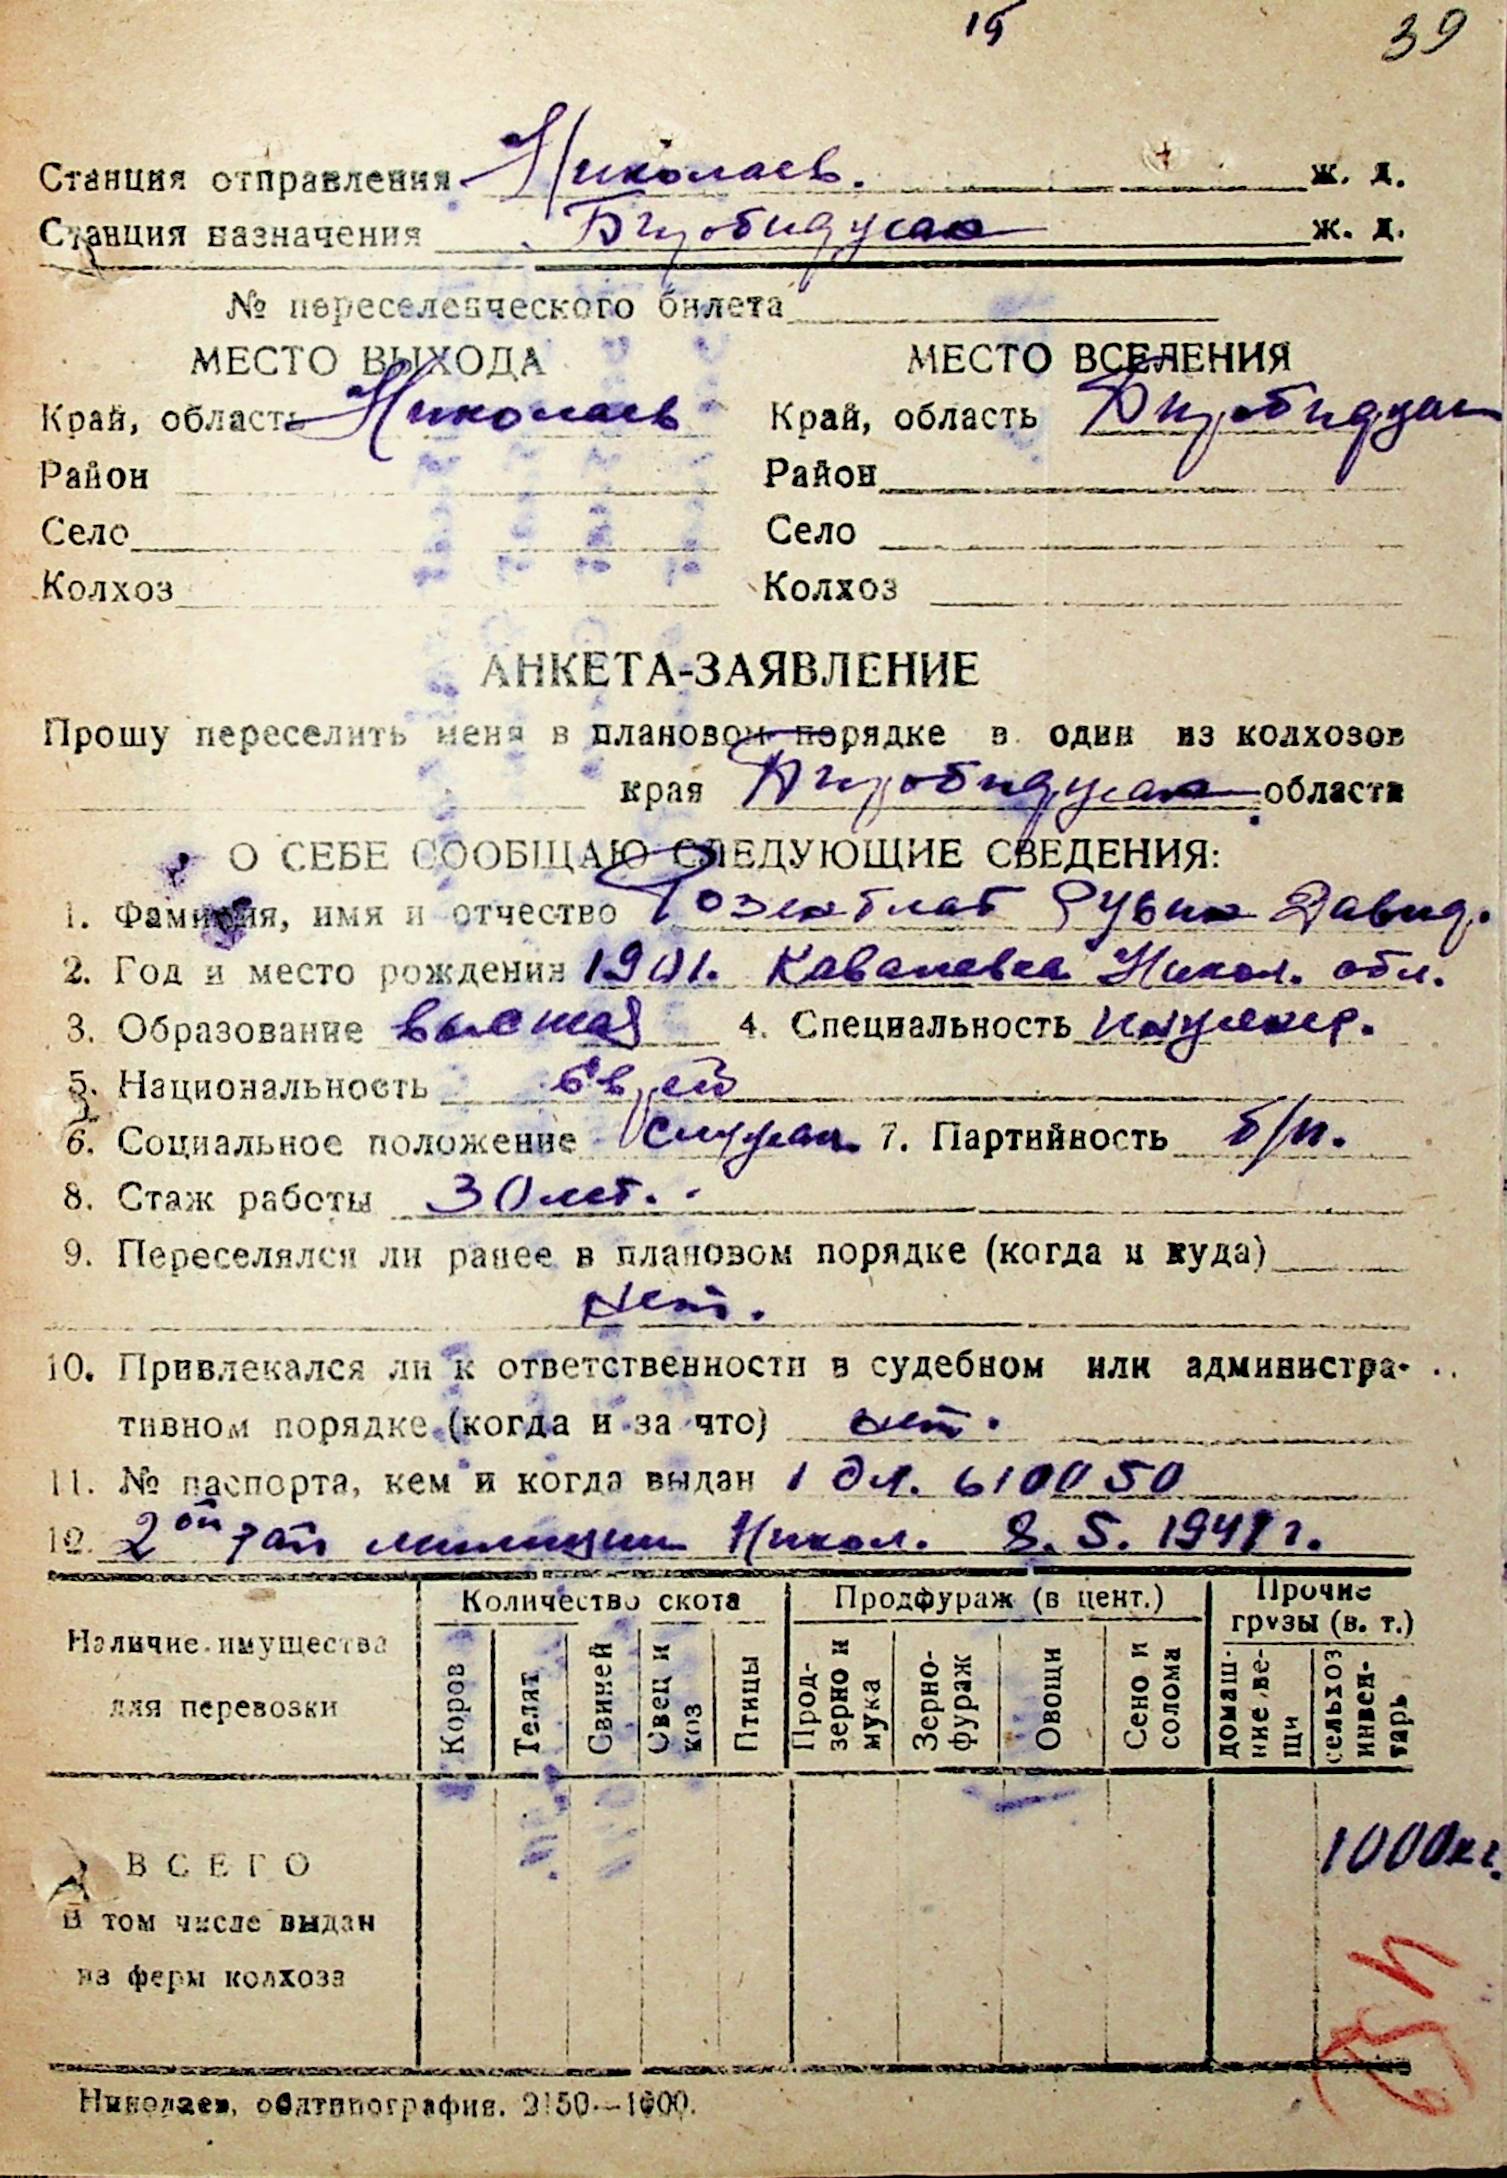 15 39
Станция отправления Николаев. ж. д.
Станция назначения Биробиджан ж. д.
№ переселенческого билета
МЕСТО ВЫХОДА МЕСТО ВСЕЛЕНИЯ
Край, область Николаев Край, область Биробиджан
Район Район
Село Село
Колхоз Колхоз
АНКЕТА-ЗАЯВЛЕНИЕ
Прошу переселить меня в плановом порядке в один из колхозов
края Биробиджан области
О СЕБЕ СООБЩАЮ СЛЕДУЮЩИЕ СВЕДЕНИЯ:
1. Фамилия, имя и отчество Розенблат Рувин Давид.
2. Год и место рождения 1901. Каваневка Никол. обл.
3. Образование высшая 4. Специальность инженер.
5. Национальность еврей
6. Социальное положение служащ. 7. Партийность б/п.
8. Стаж работы 30 лет.
9. Переселялся ли ранее в плановом порядке (когда и куда)
нет.
10. Привлекался ли к ответственности в судебном или администра-
тивном порядке (когда и за что) нет.
11. № паспорта, кем и когда выдан 610050
12. 2ой милиции Никол. 8. 5. 1941 г.
Наличие имущества для перевозки
Количество скота Продфураж (в цент.) Прочие грузы (в. т.)
Коров Телят Свиней Овец и коз Птицы Прод-зерно и мука Зерно-фураж Овощи Сено и солома домаш-ние ве-щи сельхоз инвен-тарь
ВСЕГО 1000 кг.
В том числе выдан
из ферм колхоза
Николаев, облтипография. 2150—1000.